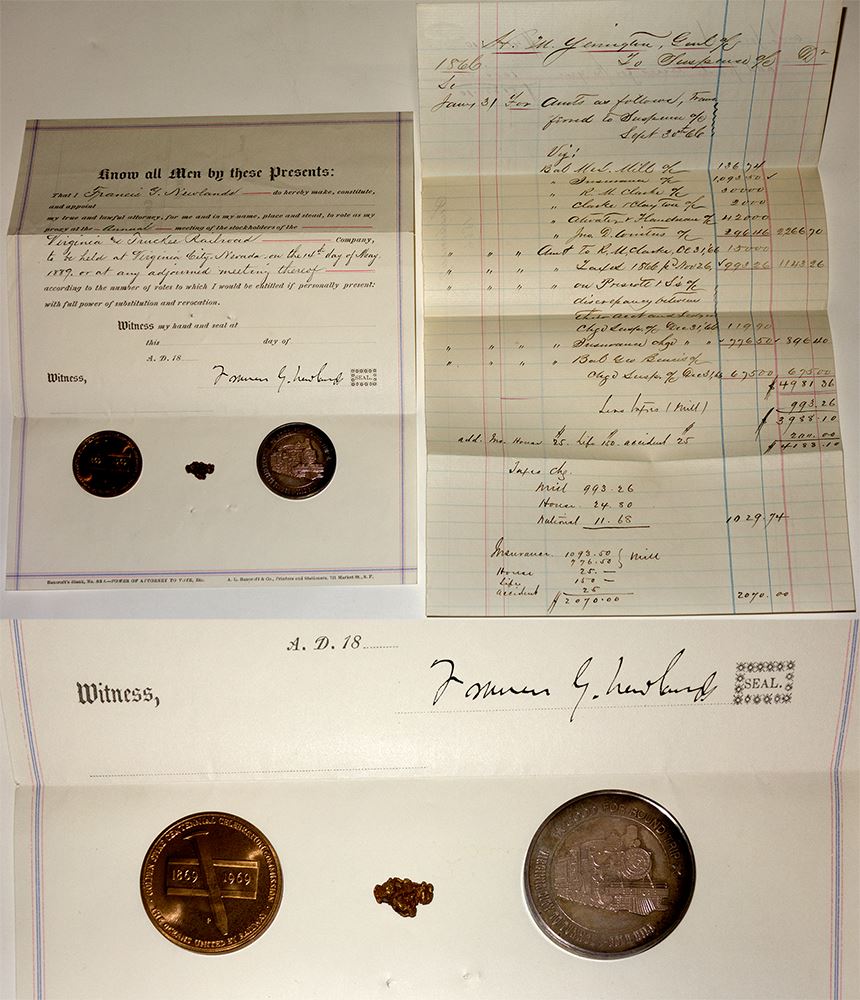 Know all Men by these Presents:
That I Francis G. Newlands do hereby make, constitute,
and appoint
my true and lawful attorney, for me and in my name, place and stead, to vote as my
proxy at the Annual meeting of the stockholders of the
Virginia & Truckee Railroad Company,
to be held at Virginia City, Nevada on the day of May,
1889, or at any adjourned meeting thereof
according to the number of votes to which I would be entitled if personally present;
with full power of substitution and revocation.
Witness my hand and seal at
this day of
A. D. 18
Witness,
Francis G. Newlands
SEAL.
Bancroft's Blank, No. —POWER OF ATTORNEY TO VOTE, Etc.
A. L. Bancroft & Co., Printers and Stationers, 721 Market St., S. F.
H. M. Yerington, Genl a/c
1866 To Suspense a/c Dr
Jany 31 For Amts as follows, Trans
ferred to Suspense a/c
Sept 30th 66
Viz:
Bal Mill a/c 136 74
" Insurance a/c 1,093.50
" R. M. Clarke a/c 300 00
" Clarke & Clayton a/c
" a/c 420 00
" Jno a/c 296 46 2,266.70
" " " Amt to R. M. Clarke, Oct 31, 66 150 00
" " " Taxes 1866 pd Nov 26, 993 26 1143.26
" " " on a/c
discrepancy between
Chgd Susp. a/c Dec 31, 66 119 90
" " " Insurance chgd " " 776 50 896 40
" " " Bal Geo a/c
Chgd Susp. a/c Dec 31, 66 675 00 675 00
$ 4981 36
Less Taxes (Mill) 993.26
$ 3988.10
add. Ins. House $25. Life 150. accident $25 200.00
$ 4188.10
Taxes chg.
Mill 993.26
House 24.80
National 11.68 1029.74
Insurance 1093.50
776.50 } Mill
House 25.—
Life 150—
accident 25
$ 2070.00 2070.00
A. D. 18
Witness,
Francis G. Newlands
SEAL.
GOLDEN SPIKE CENTENNIAL CELEBRATION COMMISSION
1869 1969
TWO OCEANS UNITED BY RAILWAY
GOOD FOR ROUND TRIP
GOLD HILL